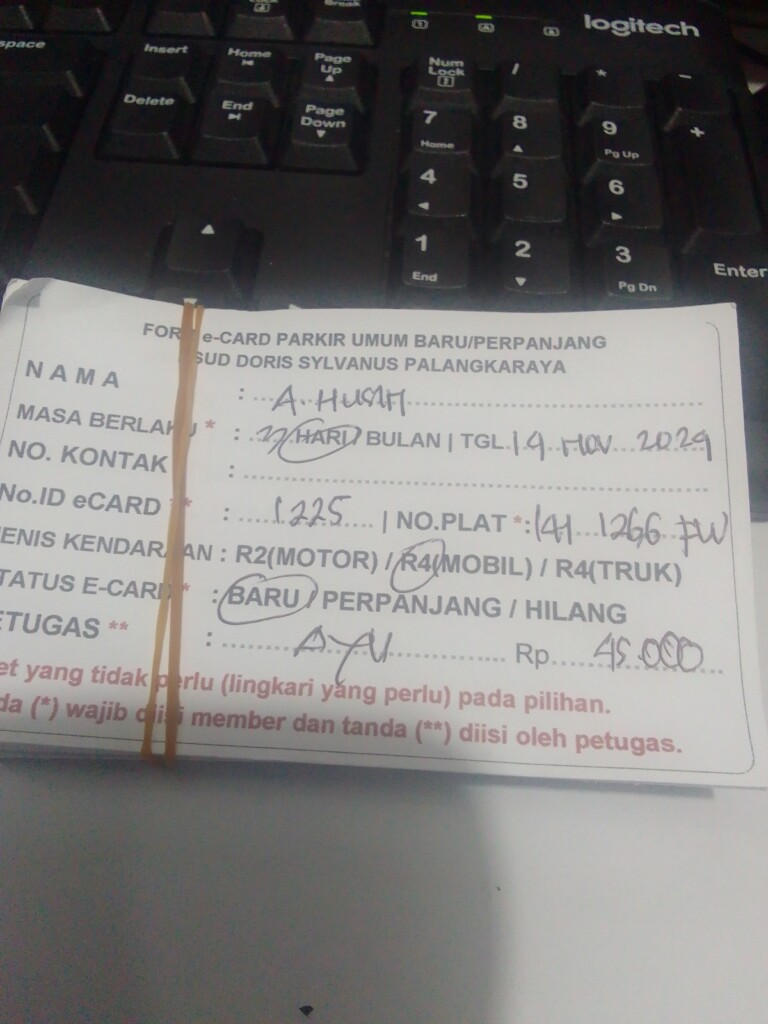 Break
logitech
space
Insert
Home
Page Up
Num Lock
/
*
-
Delete
End
Page Down
7 Home
8
9 Pg Up
+
4
5
6
1 End
2
3 Pg Dn
Enter
FOR e-CARD PARKIR UMUM BARU/PERPANJANG
SUD DORIS SYLVANUS PALANGKARAYA
NAMA : A.
MASA BERLAKU * : HARI / BULAN | TGL. 19 NOV 2024
NO. KONTAK :
No.ID eCARD ** : 1225 | NO.PLAT *: 1266
ENIS KENDARAAN : R2(MOTOR) / R4(MOBIL) / R4(TRUK)
TATUS E-CARD * : BARU / PERPANJANG / HILANG
ETUGAS ** : AYU Rp. 45.000
et yang tidak perlu (lingkari yang perlu) pada pilihan.
da (*) wajib diisi member dan tanda (**) diisi oleh petugas.